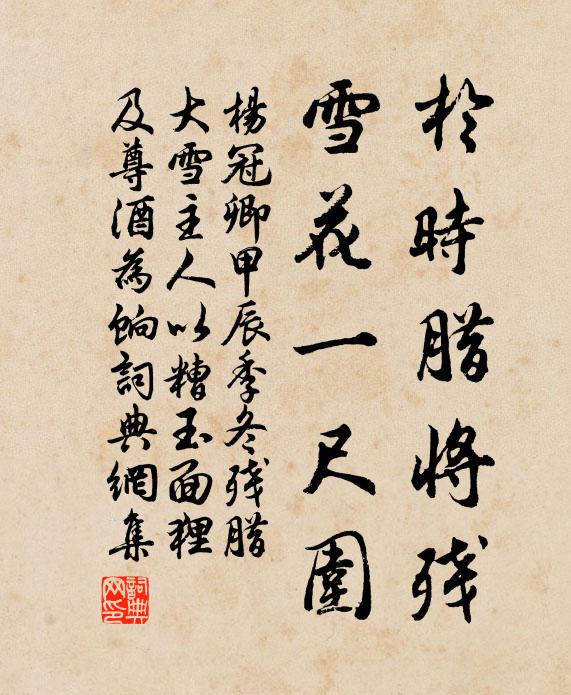 於時腊將殘
雪花一尺圍
楊冠卿甲辰季冬殘腊
大雪主人以糟玉面狸
及尊酒為餉詞典網集
詞典網印